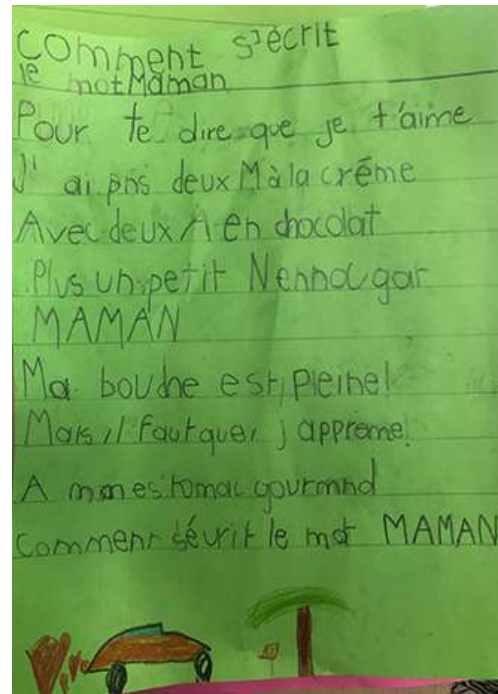 Comment s'écrit
le mot Maman
Pour te dire que je t'aime
J'ai pris deux M à la crème
Avec deux A en chocolat
Plus un petit N en nougar
MAMAN
Ma bouche est pleine!
Mais il faut que j'appreme!
A mon estomac gourmnd
Comment sévrit le mot MAMAN